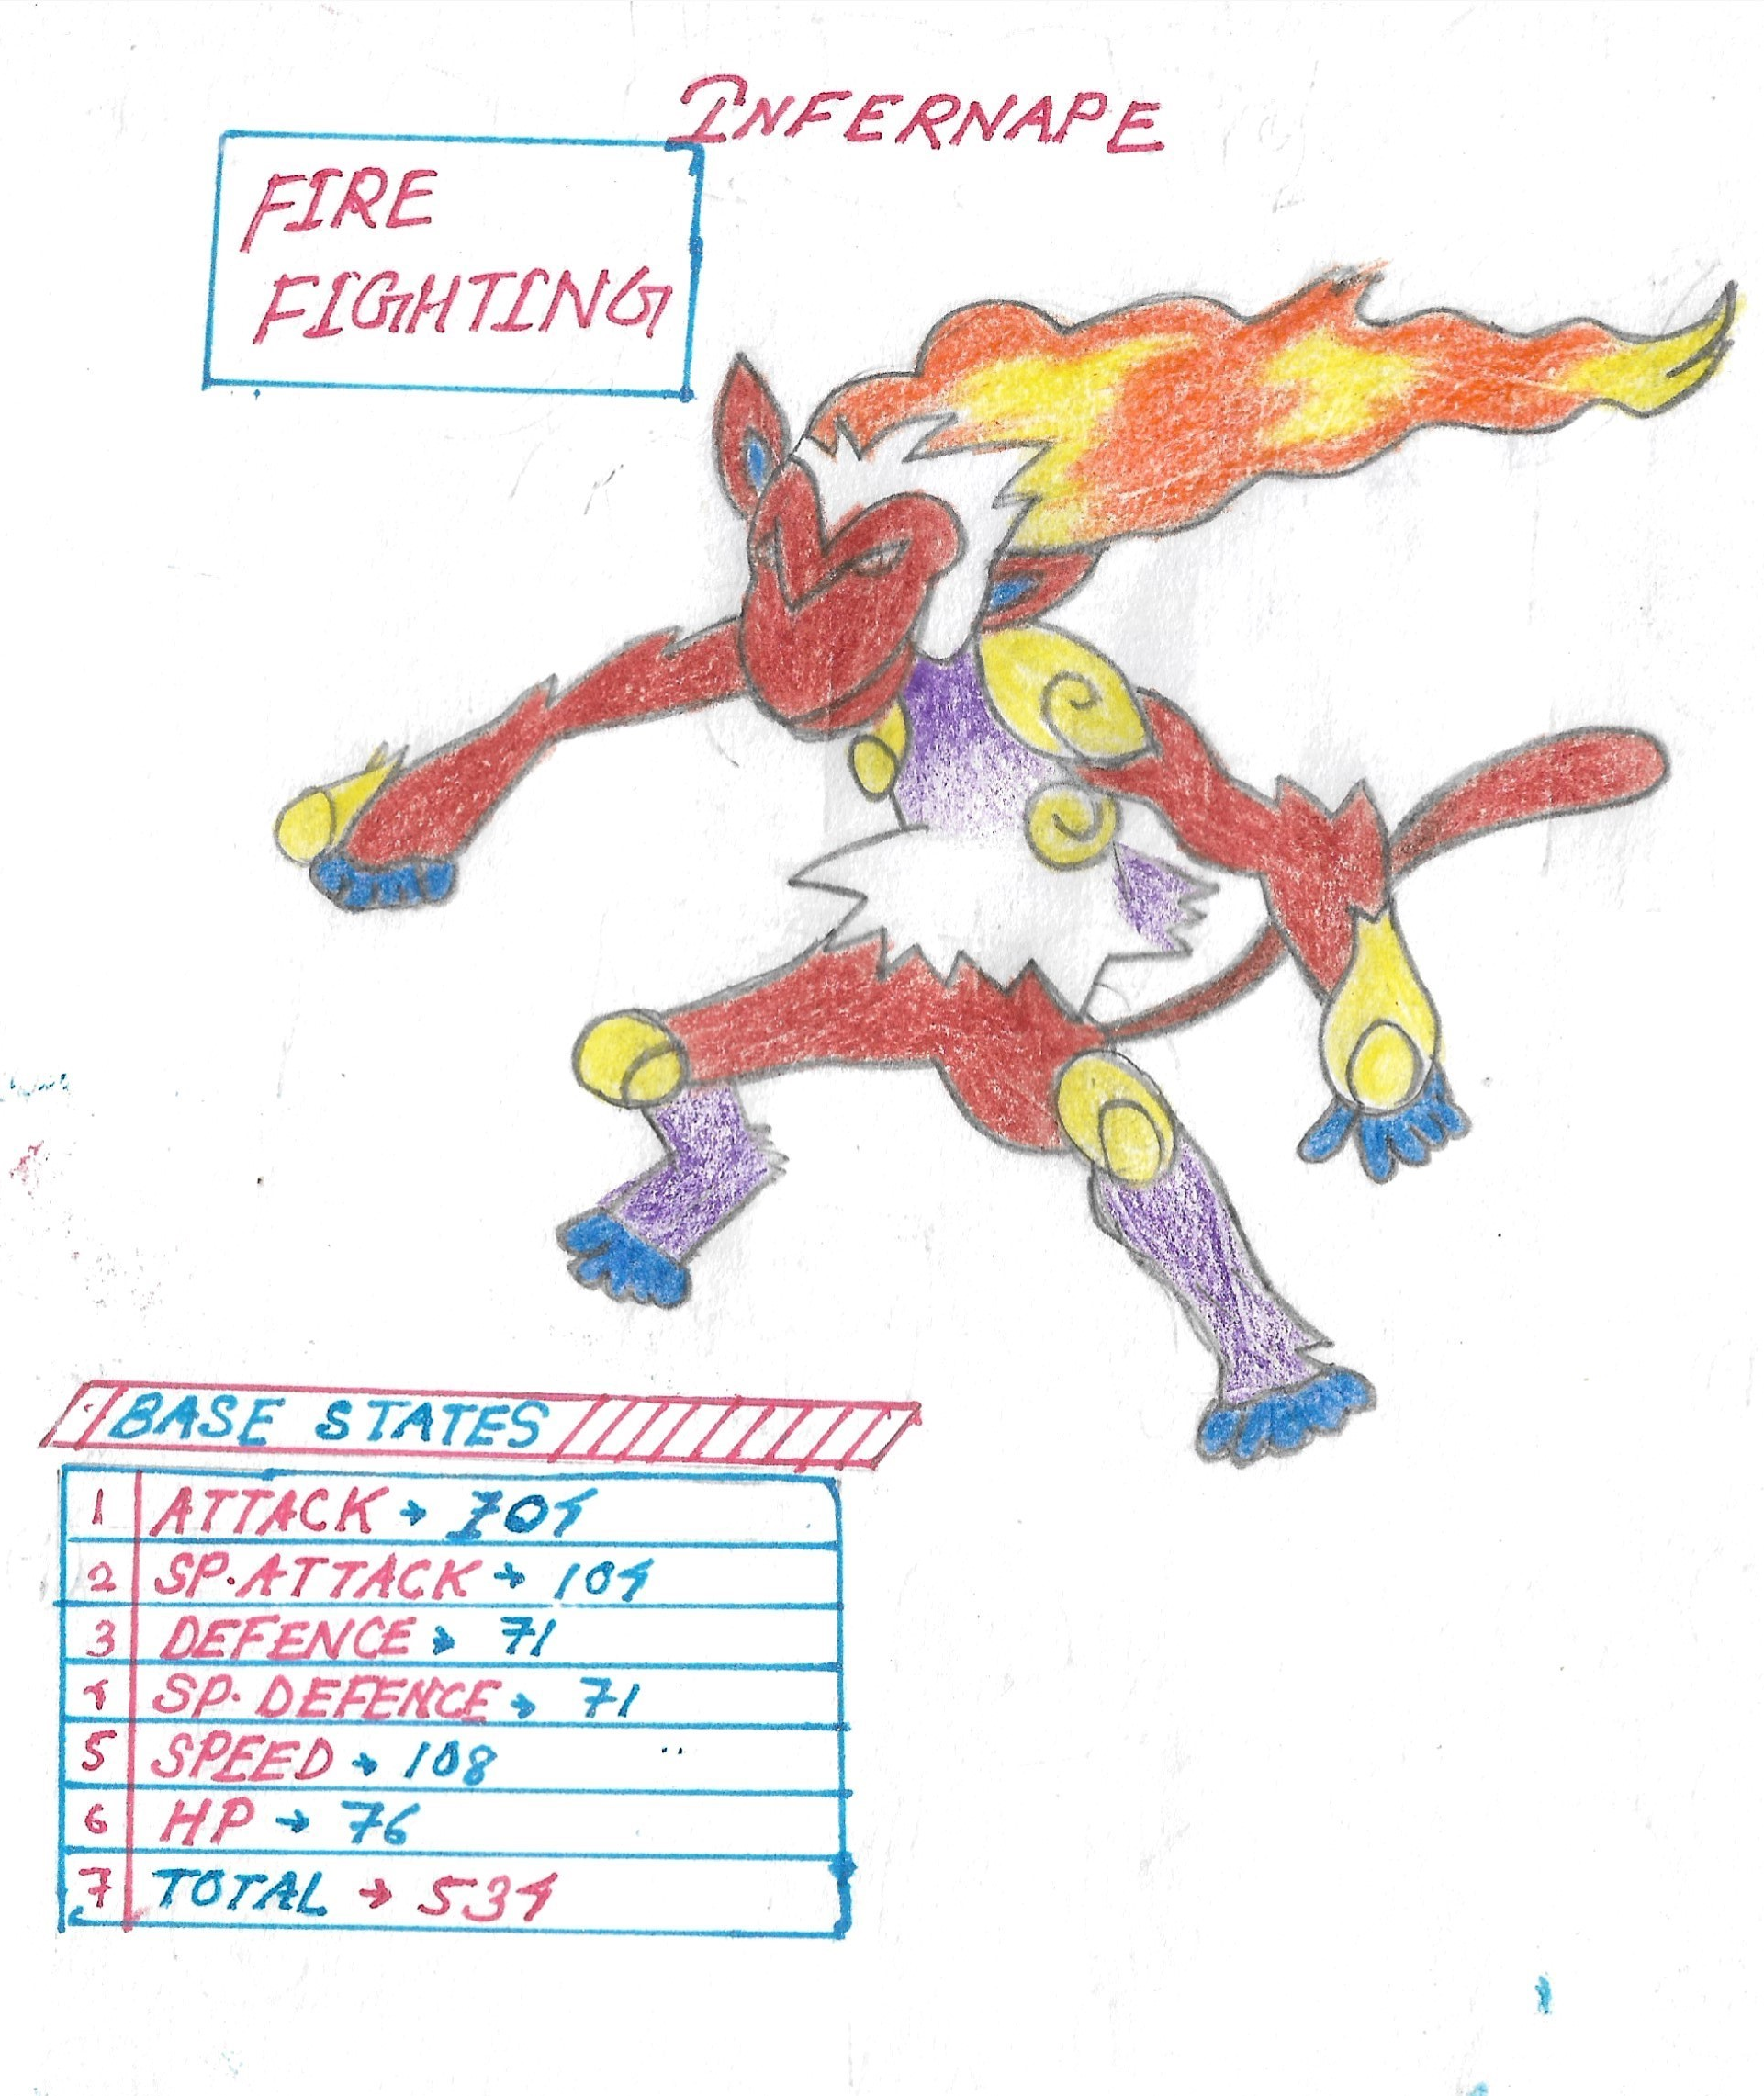 INFERNAPE
FIRE
FIGHTING
BASE STATES
1 ATTACK → 104
2 SP.ATTACK → 104
3 DEFENCE → 71
4 SP. DEFENCE → 71
5 SPEED → 108
6 HP → 76
7 TOTAL → 534